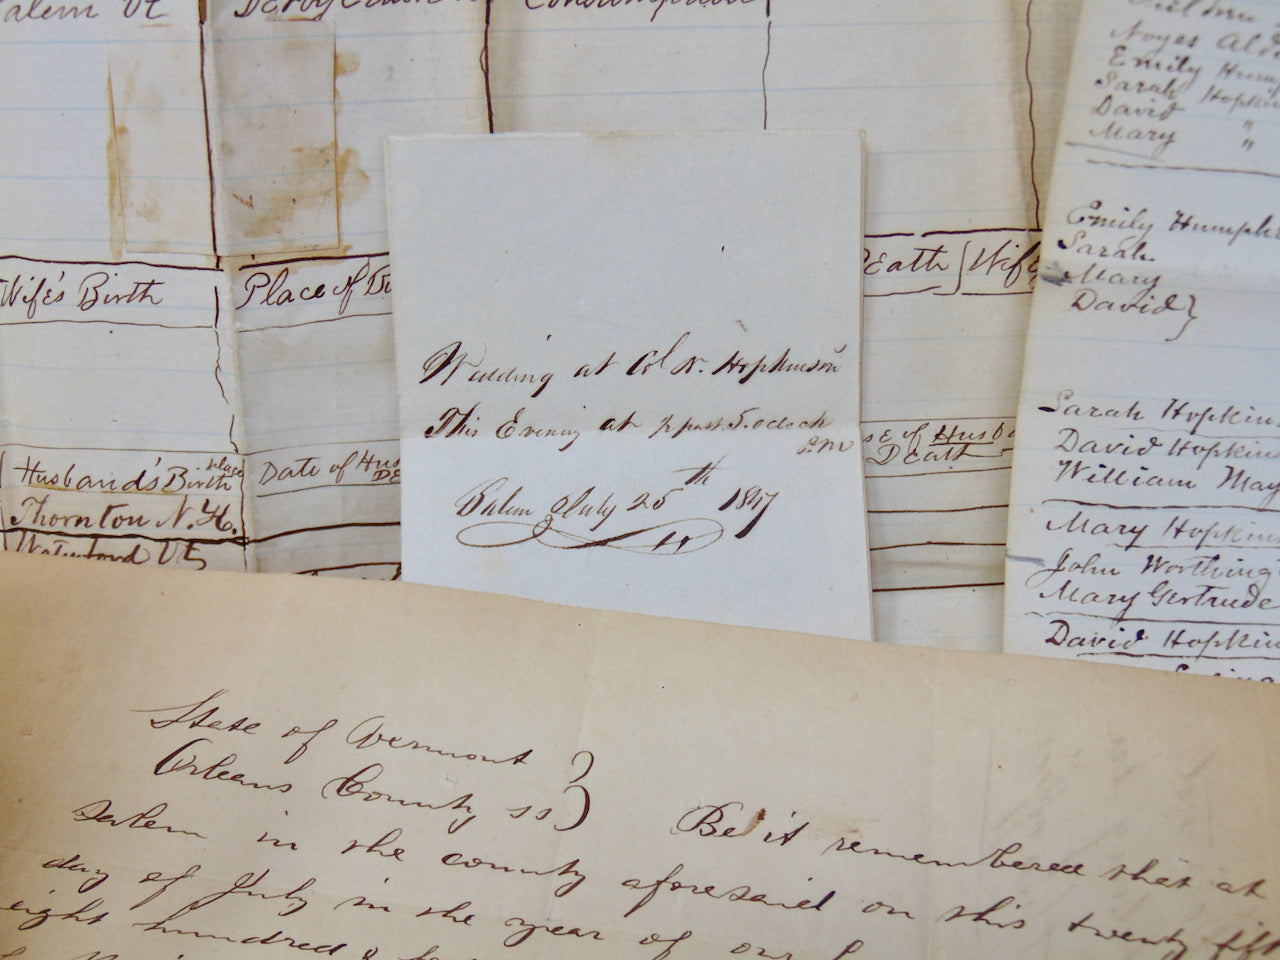 alem Vt
Consumption
Wife's Birth
Place of
Eath } Wife
Husband's Birth place
Thornton N.H.
Date of Hus
DE
se of Husb
DEath
Waterford Vt
Noyes Al
Emily Hum
Sarah Hopki
David "
Mary "
Emily Humph
Sarah
Mary
David }
Sarah Hopkin
David Hopkin
William May
Mary Hopkin
John Worthing
Mary Gertrude
David Hopkin
Wedding at Col N. Hopkinson
This Evening at ½ past 5. oclock
P.M
Salem July 25th 1847
State of Vermont }
Orleans County ss }
Be it remembered that at
Salem in the county aforesaid on this twenty fift
day of July in the year of our
eight hundred &